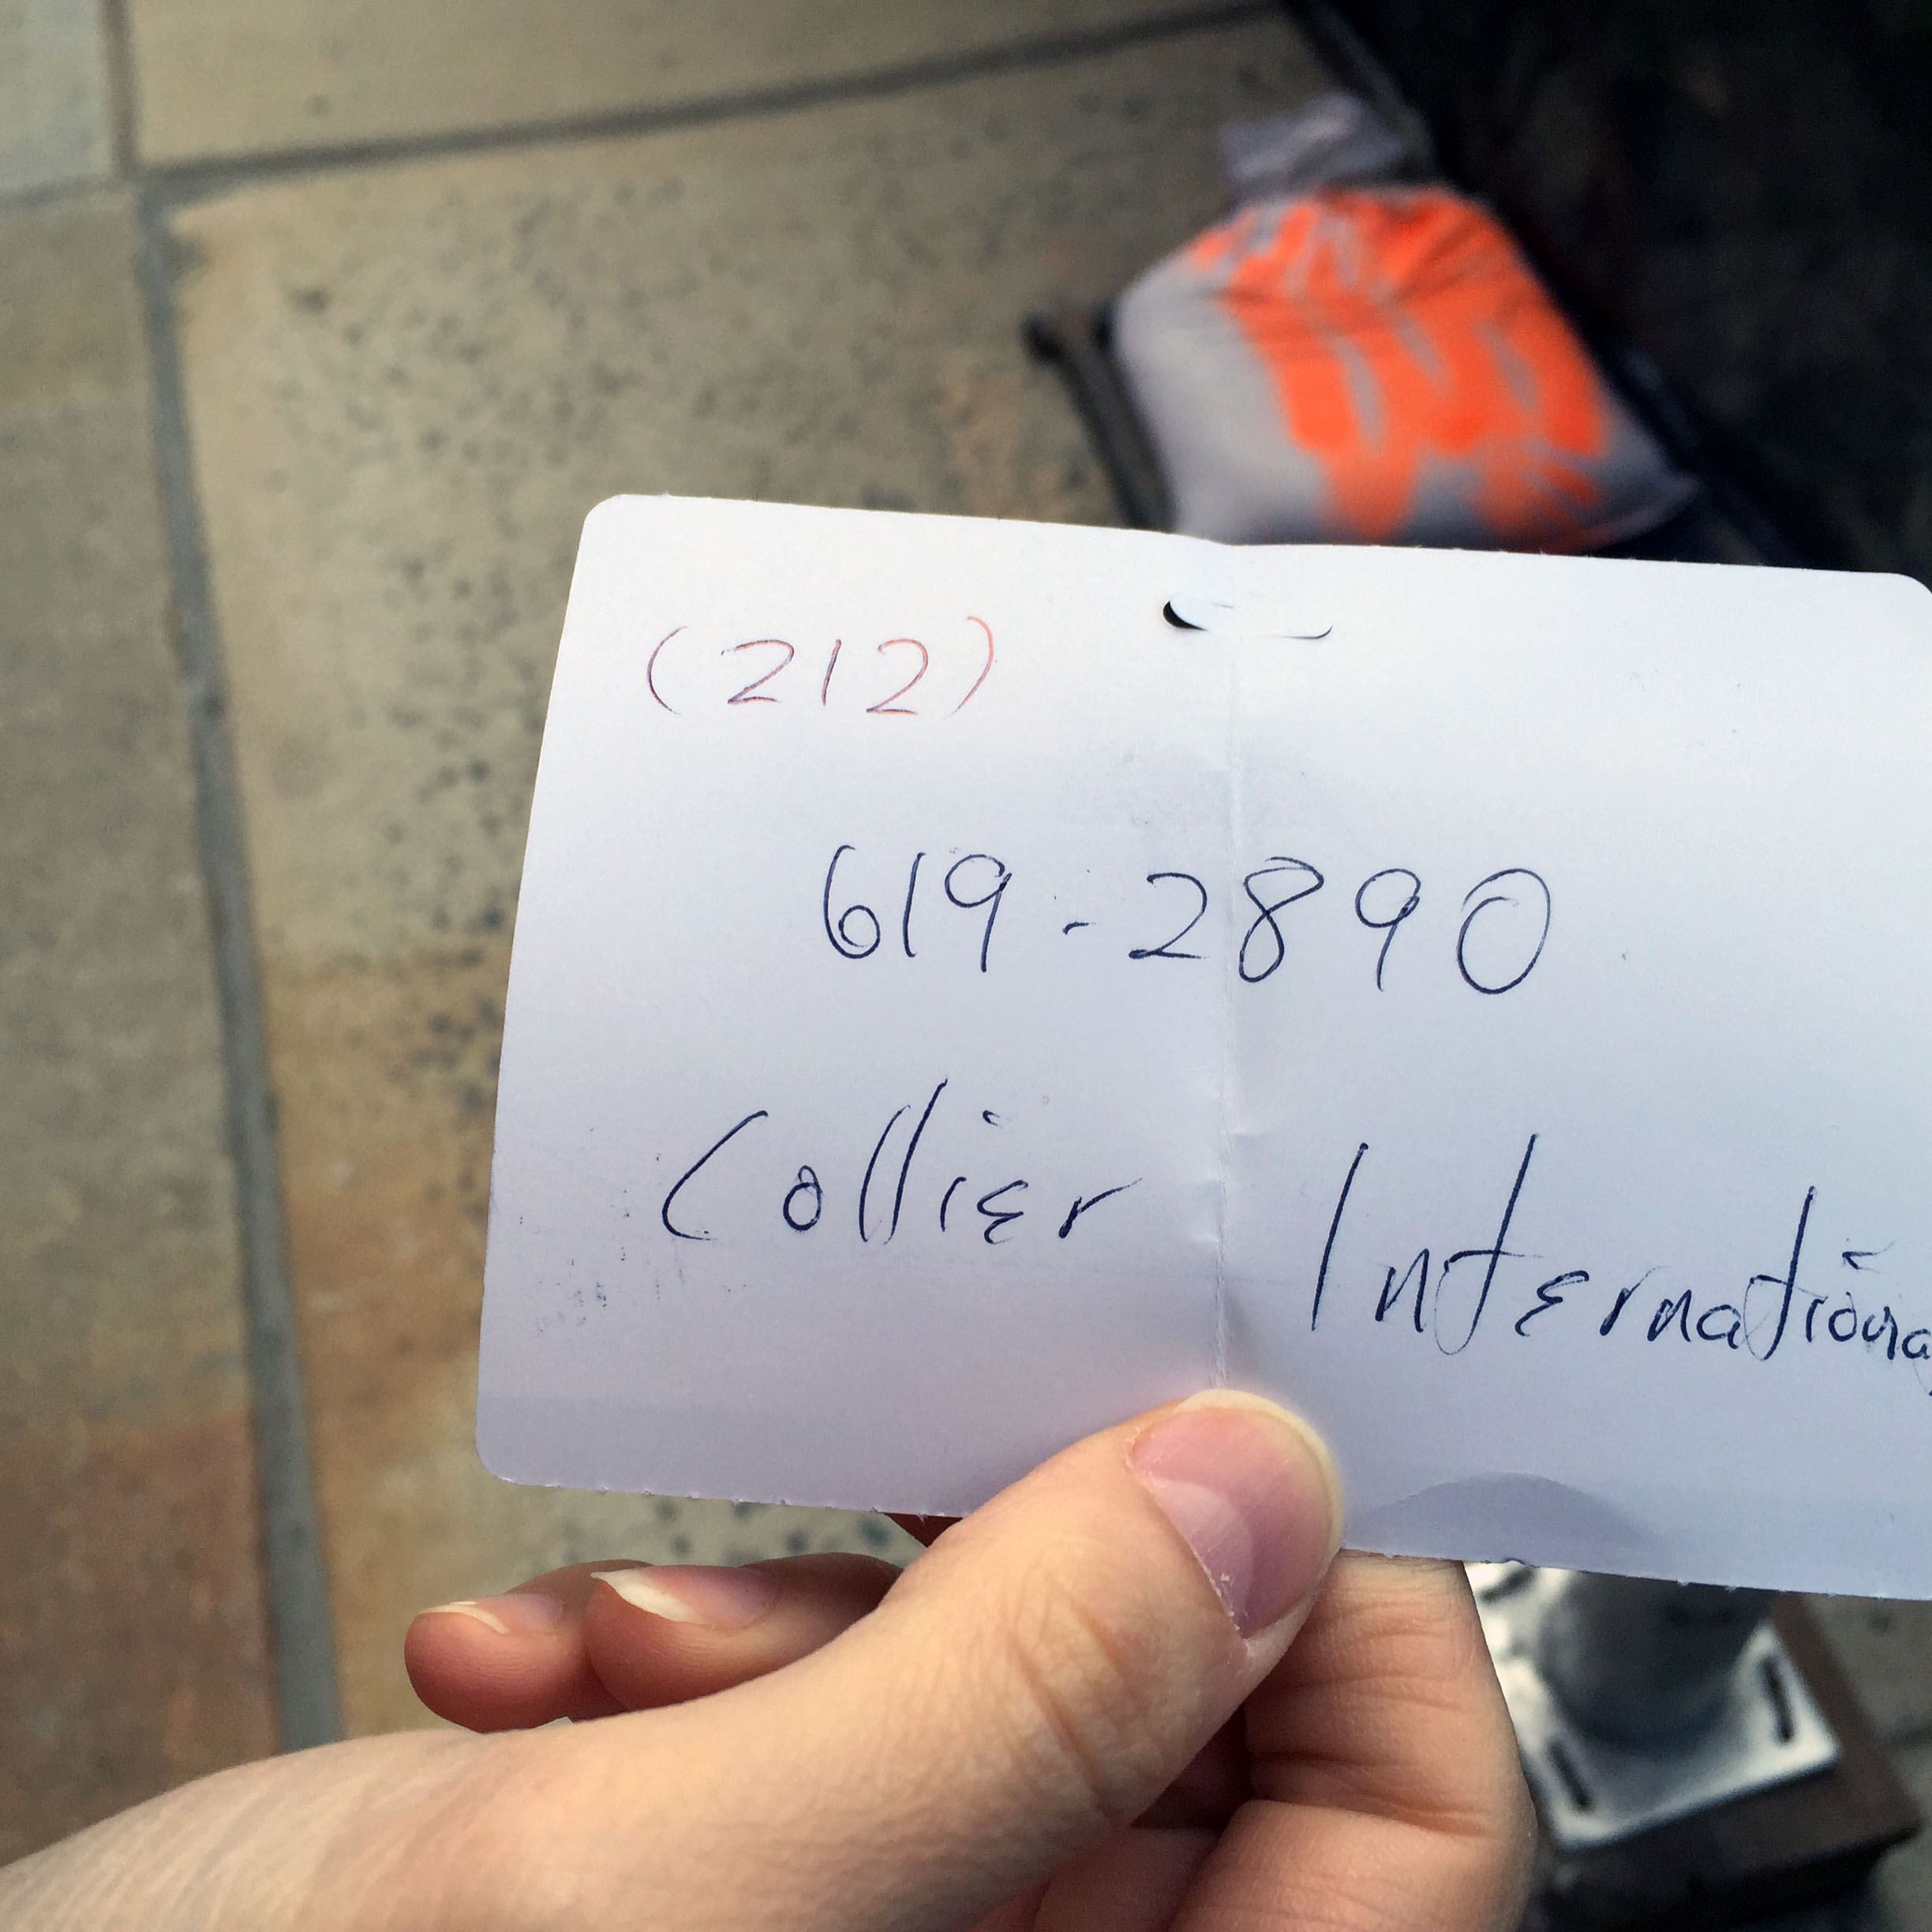 (212)
619-2890
Collier Internationa